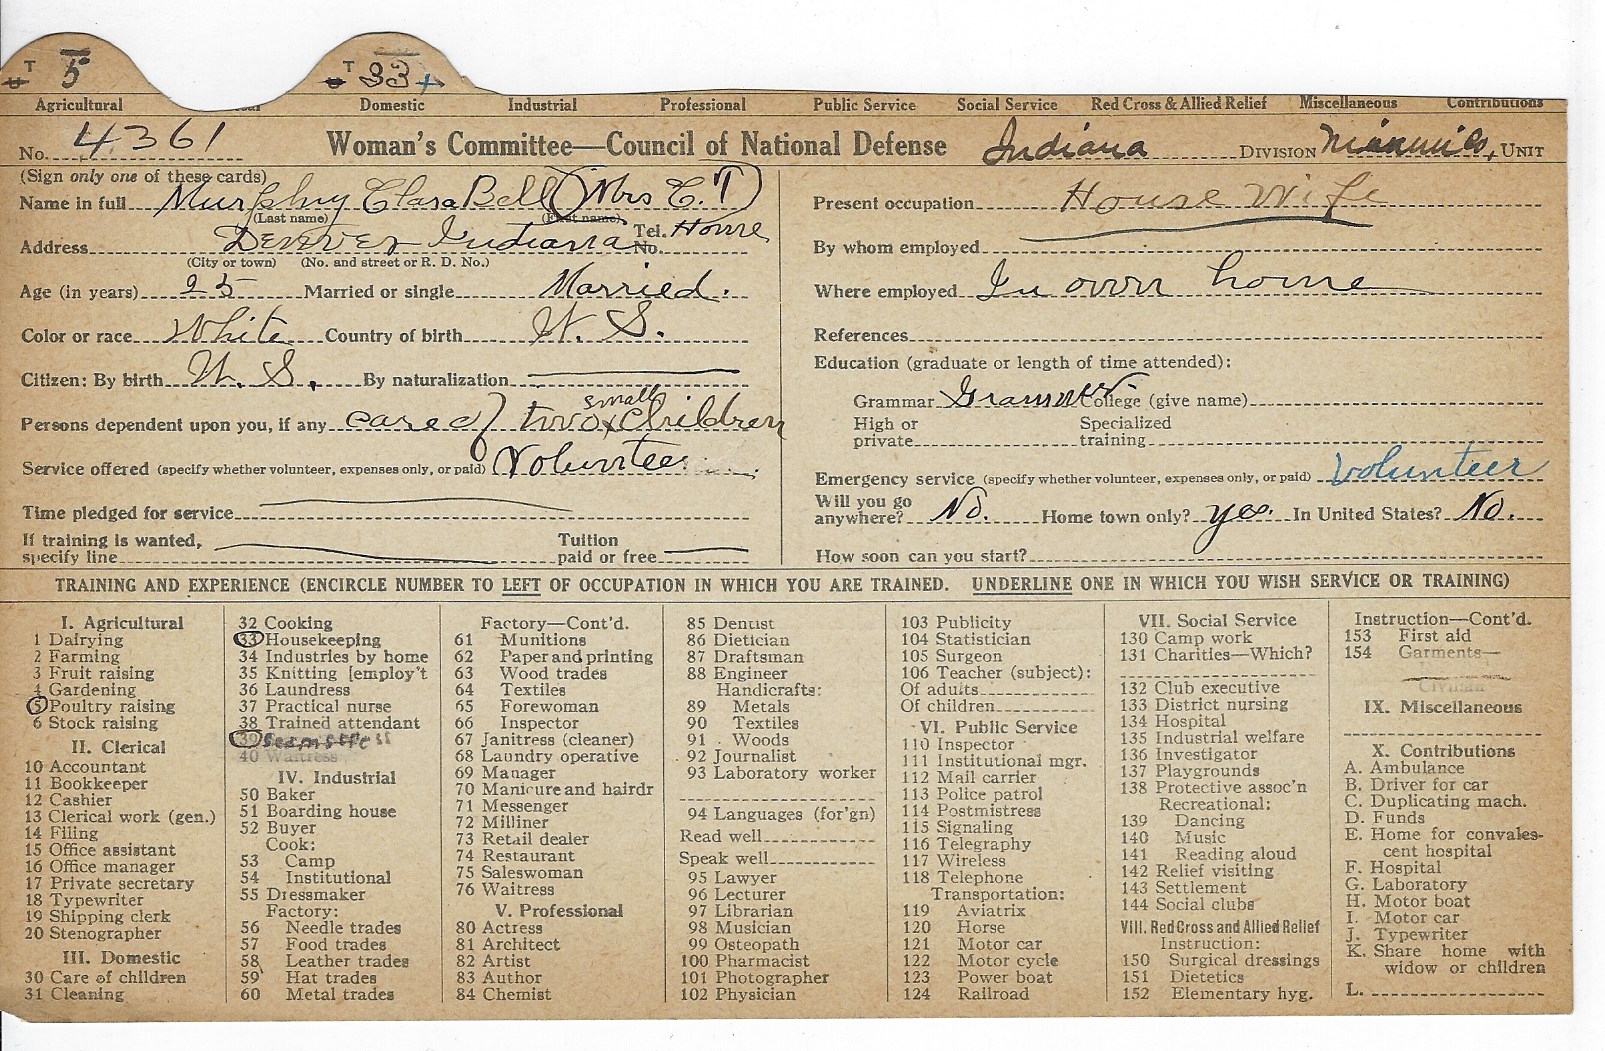 T 5 T 33 +
Agricultural Domestic Industrial Professional Public Service Social Service Red Cross & Allied Relief Miscellaneous Contributions
No. 4361 Woman's Committee—Council of National Defense Indiana DIVISION Miami Co. UNIT
(Sign only one of these cards)
Name in full Murphy Clara Bell (Mrs C. T)
(Last name) (First name)
Address Denver Indiana Tel. No. Home
(City or town) (No. and street or R. D. No.)
Age (in years) 25 Married or single Married.
Color or race White Country of birth U. S.
Citizen: By birth U. S. By naturalization
Persons dependent upon you, if any care of two small Children
Service offered (specify whether volunteer, expenses only, or paid) Volunteer
Time pledged for service
If training is wanted, specify line Tuition paid or free
Present occupation House Wife
By whom employed
Where employed In own home
References
Education (graduate or length of time attended):
Grammar Grammer College (give name)
High or private Specialized training
Emergency service (specify whether volunteer, expenses only, or paid) Volunteer
Will you go anywhere? No. Home town only? yes. In United States? No.
How soon can you start?
TRAINING AND EXPERIENCE (ENCIRCLE NUMBER TO LEFT OF OCCUPATION IN WHICH YOU ARE TRAINED. UNDERLINE ONE IN WHICH YOU WISH SERVICE OR TRAINING)
I. Agricultural
1 Dairying
2 Farming
3 Fruit raising
4 Gardening
5 Poultry raising
6 Stock raising
II. Clerical
10 Accountant
11 Bookkeeper
12 Cashier
13 Clerical work (gen.)
14 Filing
15 Office assistant
16 Office manager
17 Private secretary
18 Typewriter
19 Shipping clerk
20 Stenographer
III. Domestic
30 Care of children
31 Cleaning
32 Cooking
33 Housekeeping
34 Industries by home
35 Knitting [employ't
36 Laundress
37 Practical nurse
38 Trained attendant
39 Seamstress
40 Waitress
IV. Industrial
50 Baker
51 Boarding house
52 Buyer
Cook:
53 Camp
54 Institutional
55 Dressmaker
Factory:
56 Needle trades
57 Food trades
58 Leather trades
59 Hat trades
60 Metal trades
Factory—Cont'd.
61 Munitions
62 Paper and printing
63 Wood trades
64 Textiles
65 Forewoman
66 Inspector
67 Janitress (cleaner)
68 Laundry operative
69 Manager
70 Manicure and hairdr
71 Messenger
72 Milliner
73 Retail dealer
74 Restaurant
75 Saleswoman
76 Waitress
V. Professional
80 Actress
81 Architect
82 Artist
83 Author
84 Chemist
85 Dentist
86 Dietician
87 Draftsman
88 Engineer
Handicrafts:
89 Metals
90 Textiles
91 Woods
92 Journalist
93 Laboratory worker
94 Languages (for'gn)
Read well
Speak well
95 Lawyer
96 Lecturer
97 Librarian
98 Musician
99 Osteopath
100 Pharmacist
101 Photographer
102 Physician
103 Publicity
104 Statistician
105 Surgeon
106 Teacher (subject):
Of adults
Of children
VI. Public Service
110 Inspector
111 Institutional mgr.
112 Mail carrier
113 Police patrol
114 Postmistress
115 Signaling
116 Telegraphy
117 Wireless
118 Telephone
Transportation:
119 Aviatrix
120 Horse
121 Motor car
122 Motor cycle
123 Power boat
124 Railroad
VII. Social Service
130 Camp work
131 Charities—Which?
132 Club executive
133 District nursing
134 Hospital
135 Industrial welfare
136 Investigator
137 Playgrounds
138 Protective assoc'n
Recreational:
139 Dancing
140 Music
141 Reading aloud
142 Relief visiting
143 Settlement
144 Social clubs
VIII. Red Cross and Allied Relief
Instruction:
150 Surgical dressings
151 Dietetics
152 Elementary hyg.
Instruction—Cont'd.
153 First aid
154 Garments—
Civilian
IX. Miscellaneous
X. Contributions
A. Ambulance
B. Driver for car
C. Duplicating mach.
D. Funds
E. Home for convales-
cent hospital
F. Hospital
G. Laboratory
H. Motor boat
I. Motor car
J. Typewriter
K. Share home with
widow or children
L.